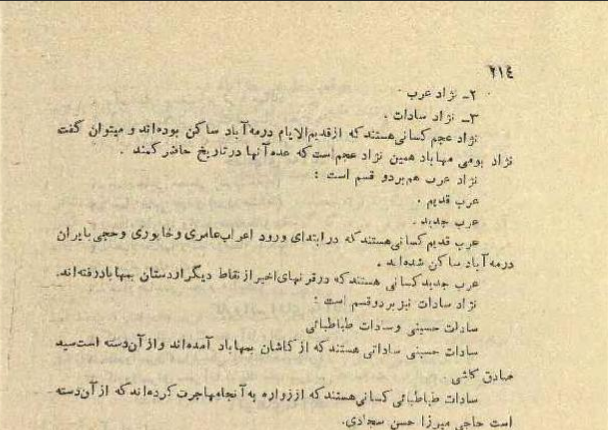 ۲۱٤
۲ـ نژاد عرب
۳ـ نژاد سادات .
نژاد عجم کسانی هستند که از قدیم‌الایام در مه‌آباد ساکن بوده‌اند و میتوان گفت
نژاد بومی مهاباد همین نژاد عجم است که عده آنها در تاریخ حاضر کمند .
نژاد عرب هم بر دو قسم است :
عرب قدیم .
عرب جدید .
عرب قدیم کسانی هستند که در ابتدای ورود اعراب عامری و خابوری و حجی بایران
در مه‌آباد ساکن شده‌اند .
عرب جدید کسانی هستند که در قرنهای اخیر از نقاط دیگر اردستان بمهاباد رفته‌اند.
نژاد سادات نیز بر دو قسم است :
سادات حسینی و سادات طباطبائی
سادات حسینی ساداتی هستند که از کاشان بمهاباد آمده‌اند و از آن دسته است سید
صادق کاشی
سادات طباطبائی کسانی هستند که از زواره به آنجا مهاجرت کرده‌اند که از آن دسته
است حاجی میرزا حسن سجادی.